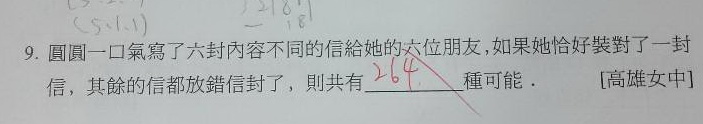 (5.1.1)
9. 圓圓一口氣寫了六封內容不同的信給她的六位朋友,如果她恰好裝對了一封
信，其餘的信都放錯信封了，則共有264種可能． [高雄女中]